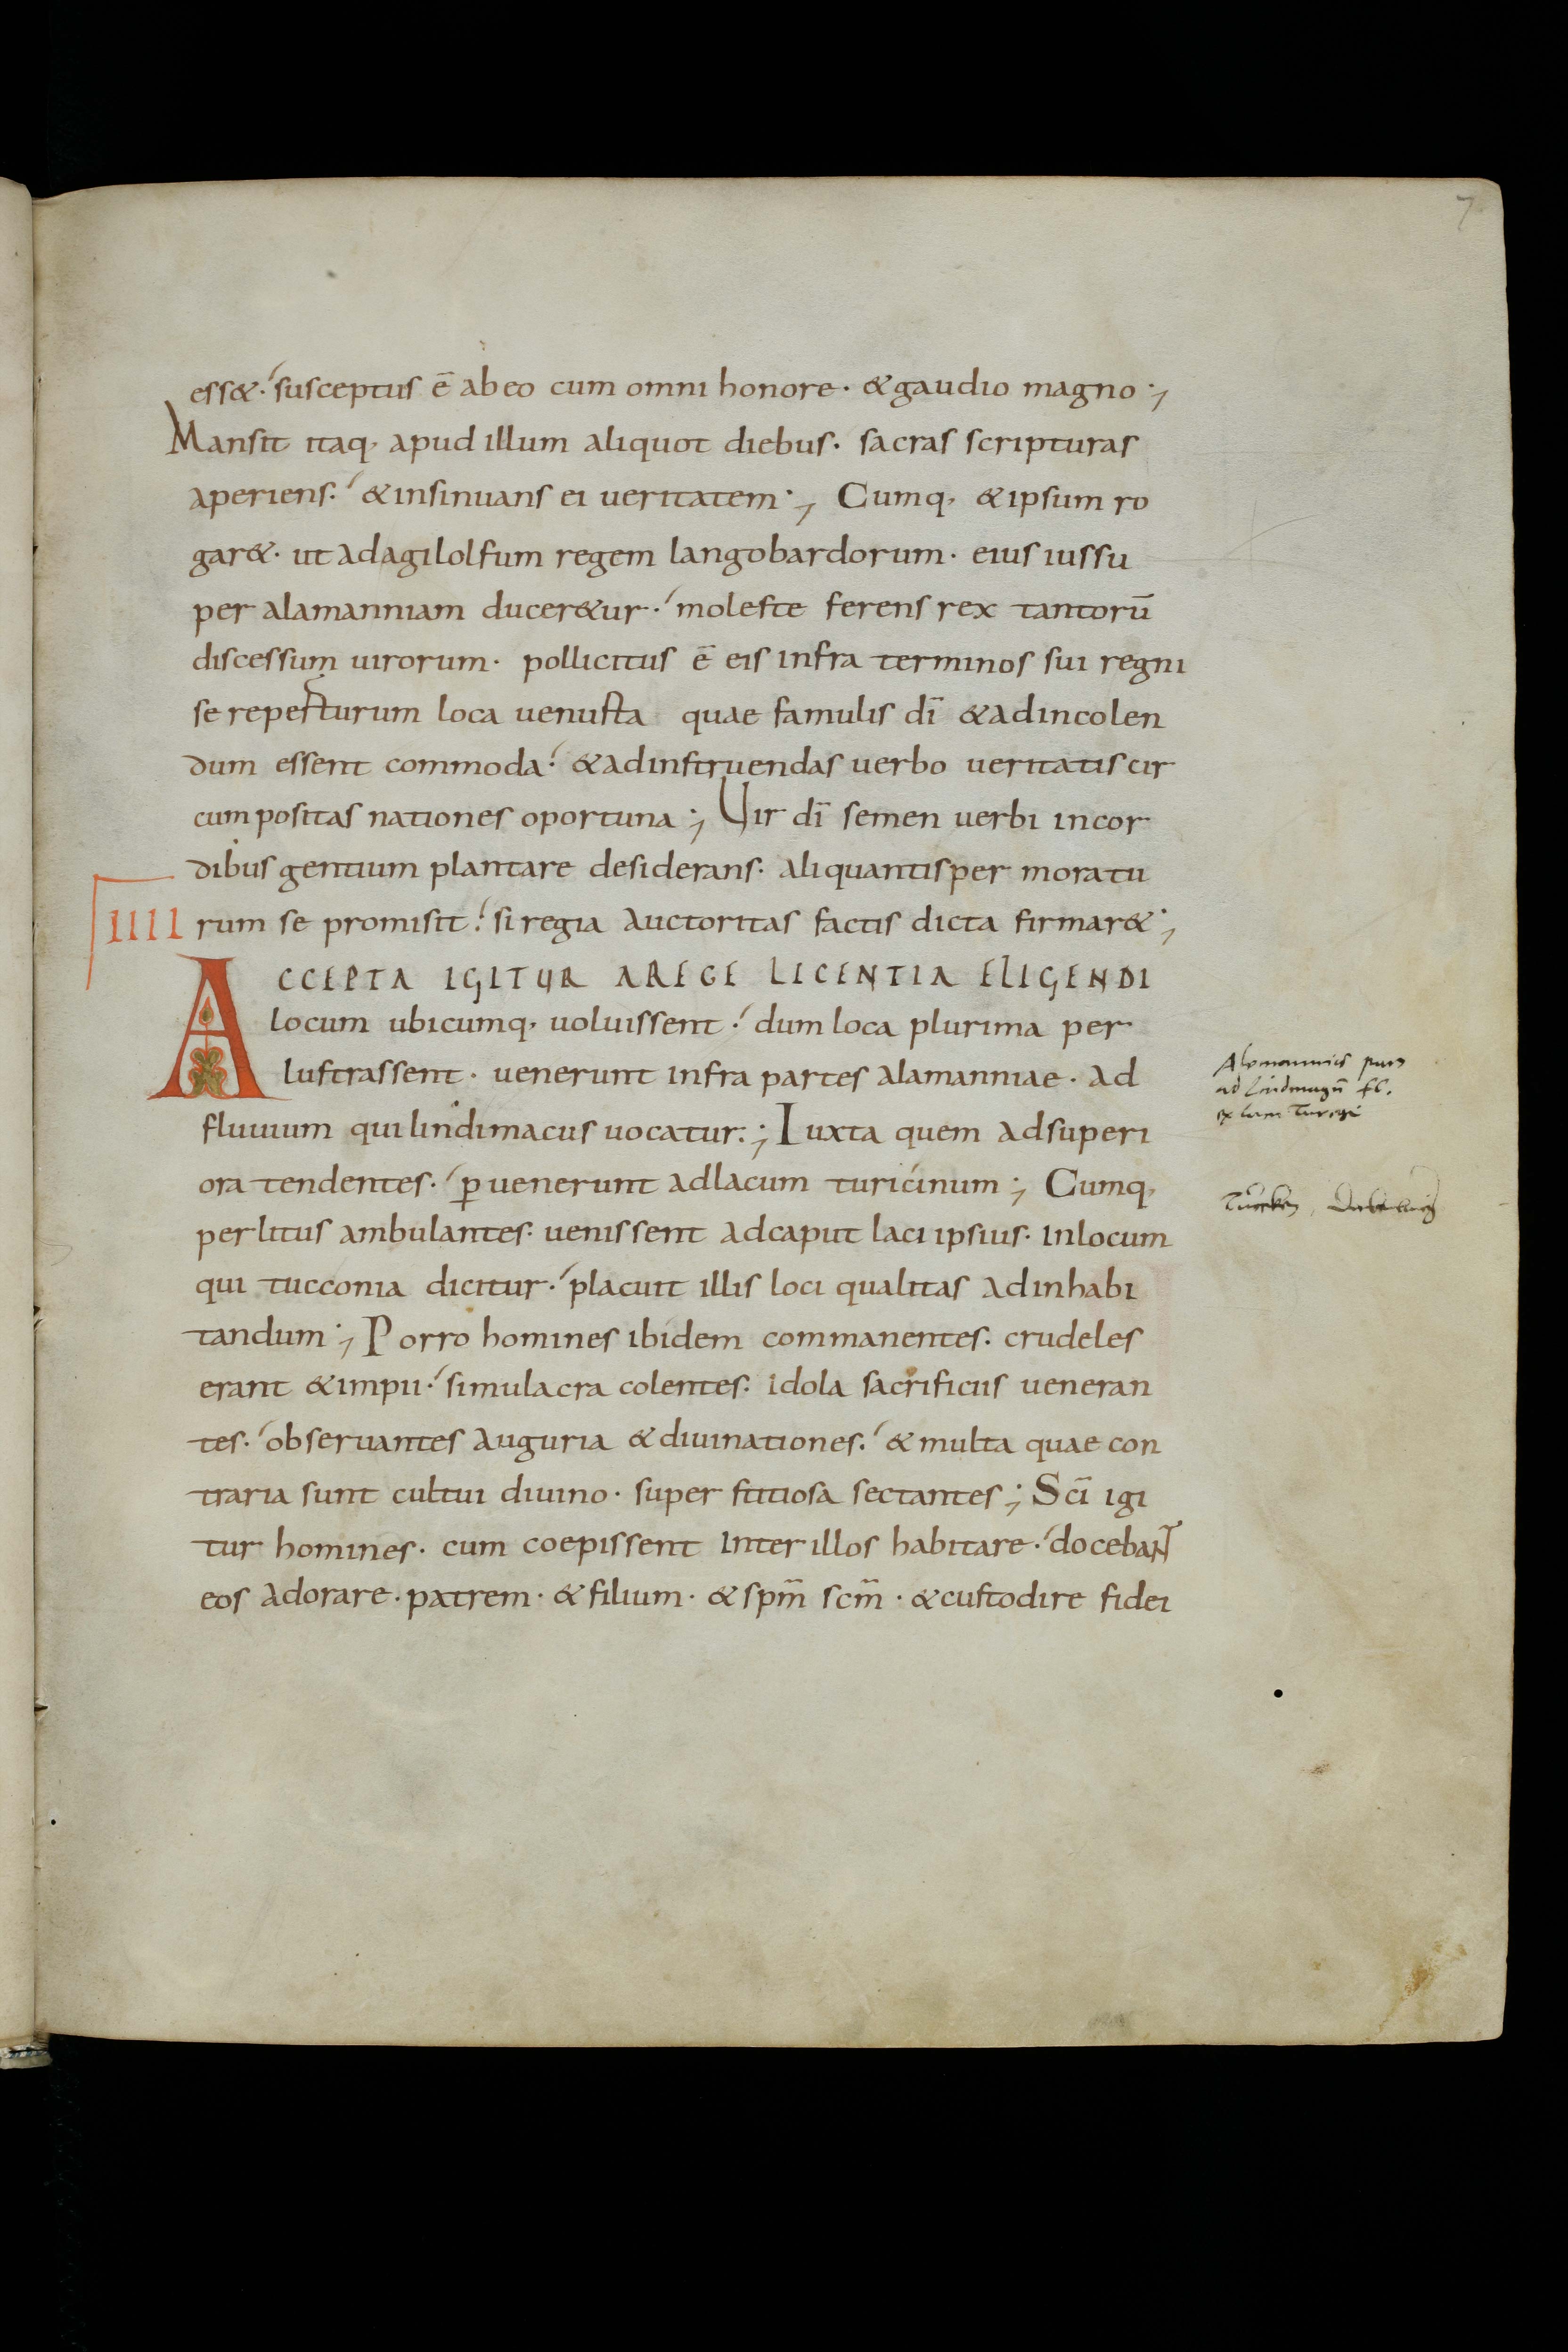 7
ess&. susceptus ē ab eo cum omni honore. & gaudio magno;
Mansit itaq, apud illum aliquot diebus. sacras scripturas
aperiens. & insinuans ei ueritatem; Cumq, & ipsum ro
gar&. ut ad agilolfum regem langobardorum. eius iussu
per alamanniam ducer&ur. moleste ferens rex tantorū
discessum uirorum. pollicitus ē eis infra terminos sui regni
se reperturum loca uenusta quae famulis dī & ad incolen
dum essent commoda. & ad instruendas uerbo ueritatis cir
cum positas nationes oportuna; Uir dī semen uerbi in cor
dibus gentium plantare desiderans. aliquantisper moratu
IIII rum se promisit. si regia auctoritas factis dicta firmar&;
ACCEPTA IGITUR A REGE LICENTIA ELIGENDI
locum ubicumq, uoluissent. dum loca plurima per
lustrassent. uenerunt infra partes alamanniae. ad
fluuium qui lindimacus uocatur.; Iuxta quem ad superi
ora tendentes. ꝑuenerunt ad lacum turicinum; Cumq,
per litus ambulantes. uenissent ad caput laci ipsius. in locum
qui tucconia dicitur. placuit illis loci qualitas ad inhabi
tandum; Porro homines ibidem commanentes. crudeles
erant & impii. simulacra colentes. idola sacrificiis ueneran
tes. obseruantes auguria & diuinationes. & multa quae con
traria sunt cultui diuino. superstitiosa sectantes; Scī igi
tur homines. cum coepissent inter illos habitare. doceban̄t
eos adorare. patrem. & filium. & spm̄ scm̄. & custodire fidei
Alemannies pars
ad Lindmagū fl.
ex lacu Turegi
Tucken,